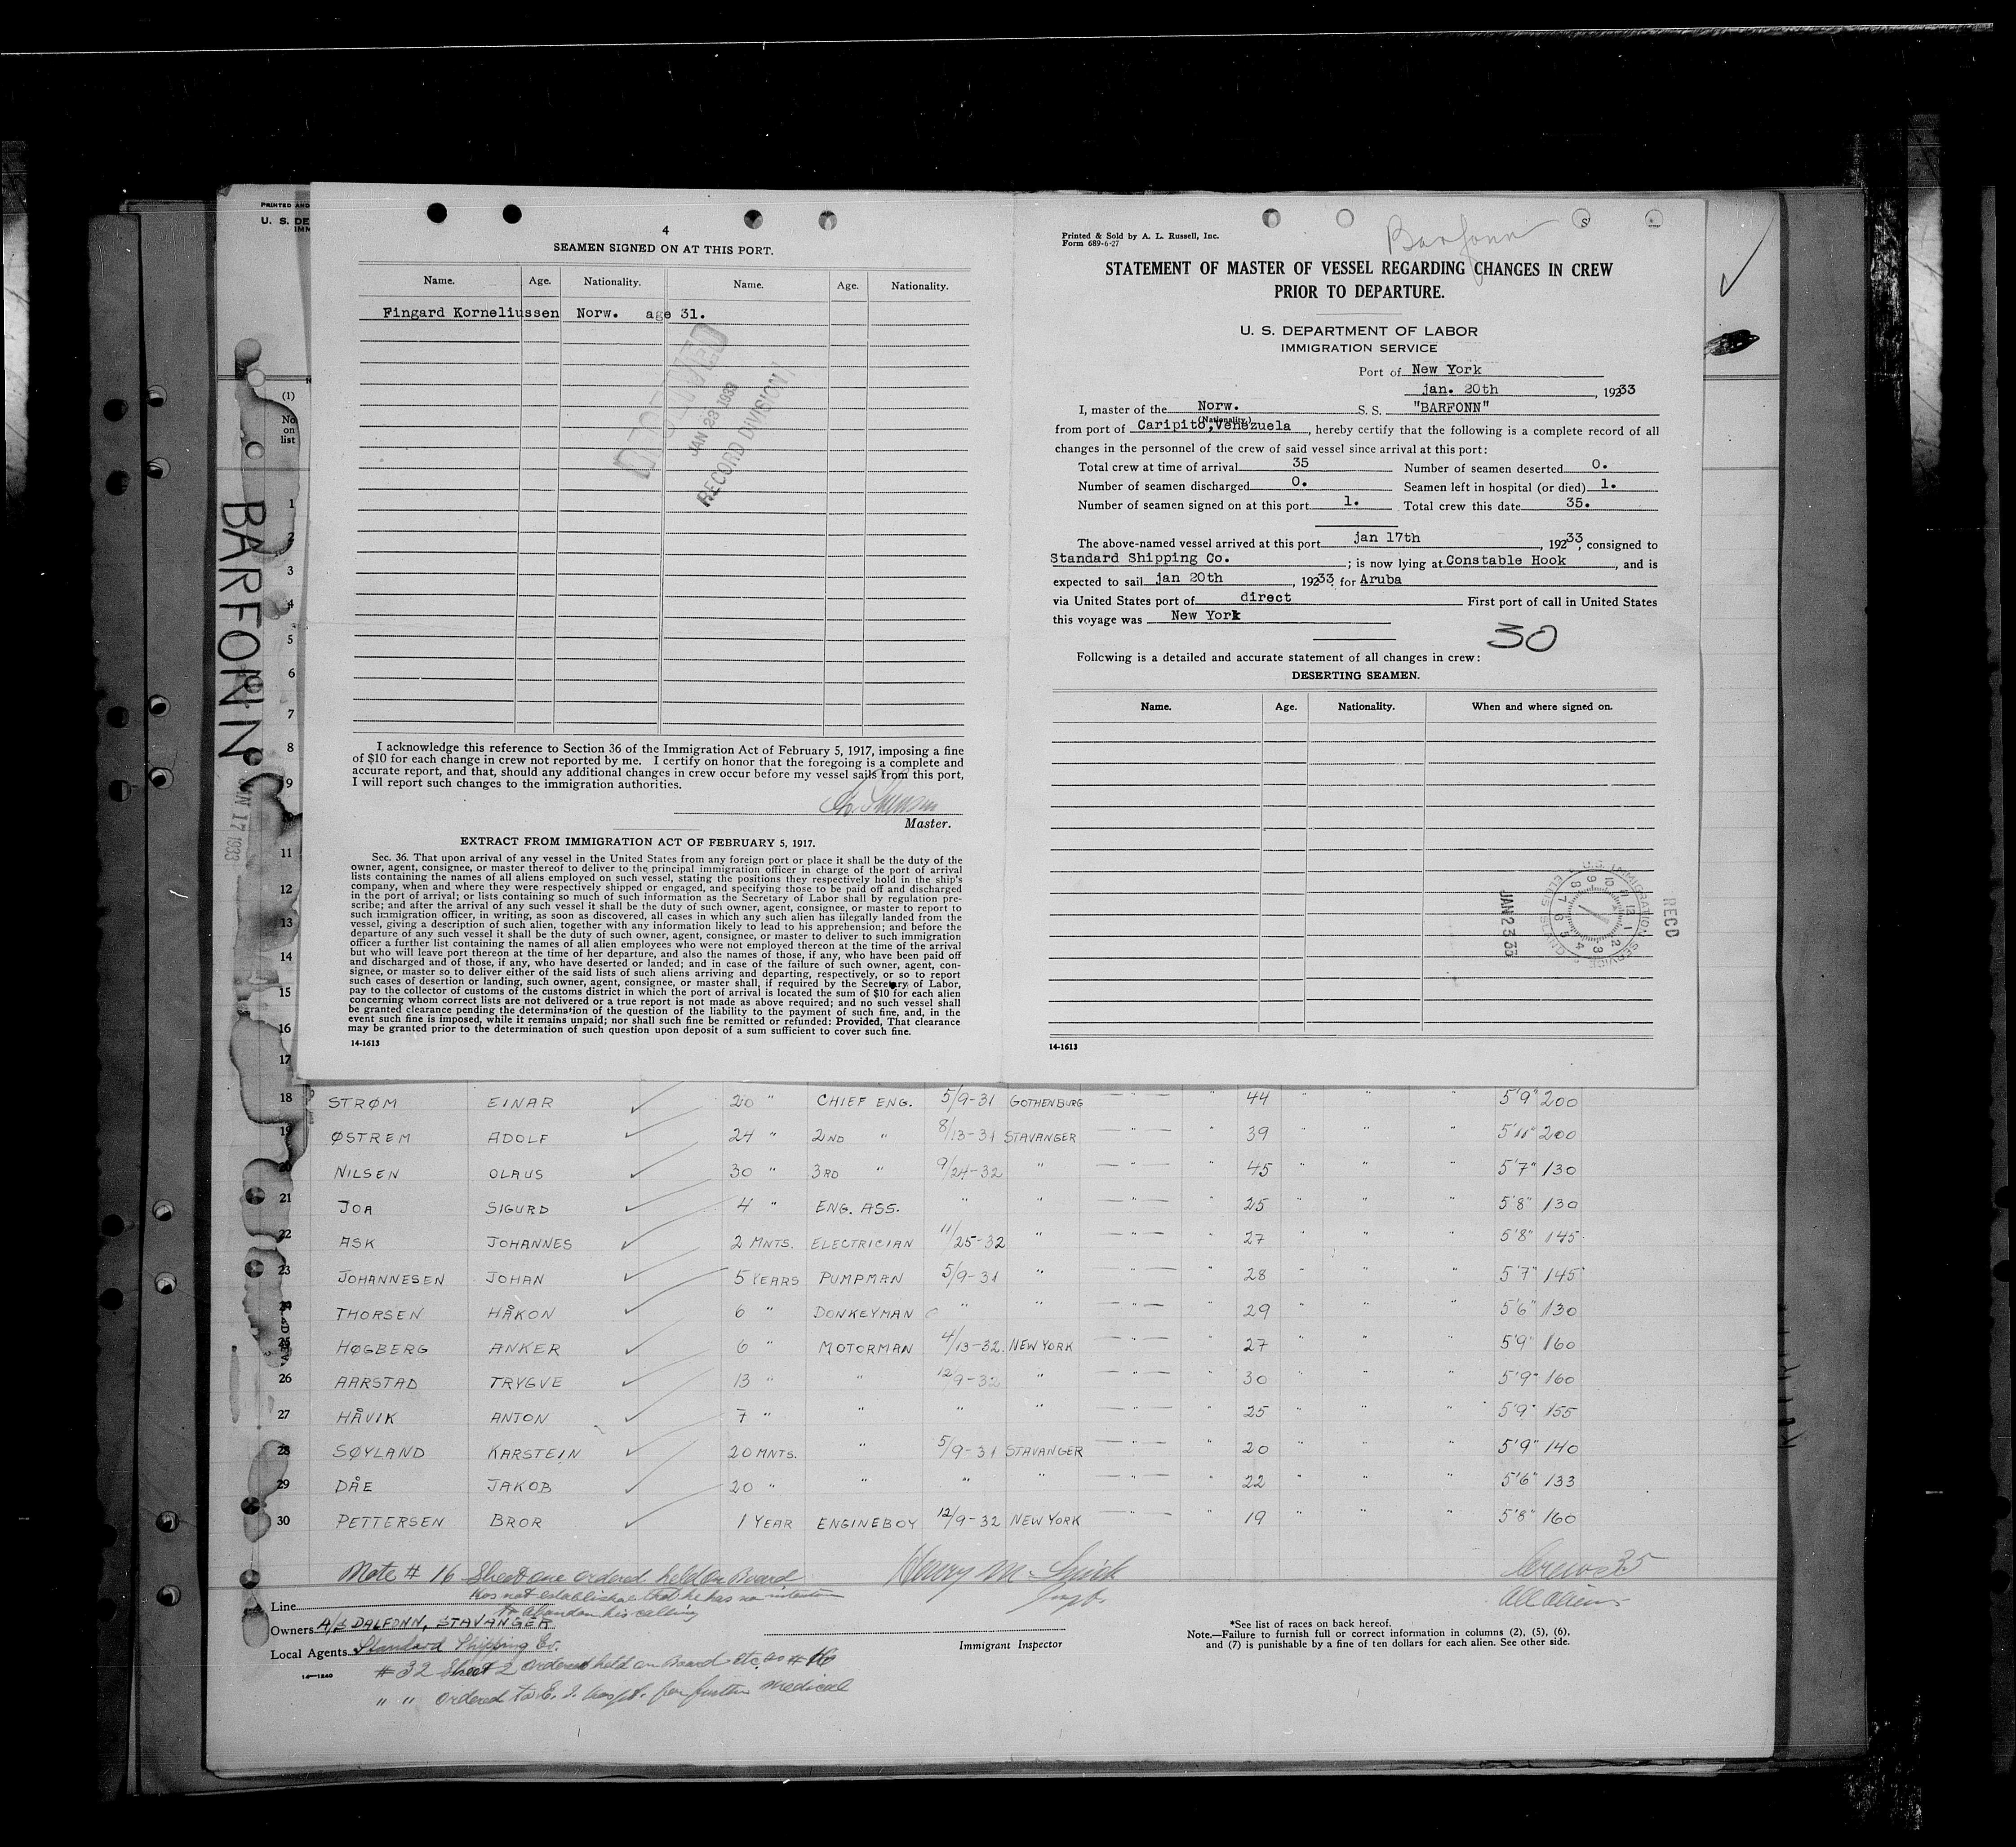 PRINTED AND
U. S. DE
IMM
(1)
No
on
list
BARFONN
JAN 17 1933
4
SEAMEN SIGNED ON AT THIS PORT.
Name. Age. Nationality. Name. Age. Nationality.
Fingard Korneliussen Norw. age 31.
RECEIVED
JAN 23 1933
RECORD DIVISION
I acknowledge this reference to Section 36 of the Immigration Act of February 5, 1917, imposing a fine
of $10 for each change in crew not reported by me. I certify on honor that the foregoing is a complete and
accurate report, and that, should any additional changes in crew occur before my vessel sails from this port,
I will report such changes to the immigration authorities.
Master.
EXTRACT FROM IMMIGRATION ACT OF FEBRUARY 5, 1917.
Sec. 36. That upon arrival of any vessel in the United States from any foreign port or place it shall be the duty of the
owner, agent, consignee, or master thereof to deliver to the principal immigration officer in charge of the port of arrival
lists containing the names of all aliens employed on such vessel, stating the positions they respectively hold in the ship's
company, when and where they were respectively shipped or engaged, and specifying those to be paid off and discharged
in the port of arrival; or lists containing so much of such information as the Secretary of Labor shall by regulation pre-
scribe; and after the arrival of any such vessel it shall be the duty of such owner, agent, consignee, or master to report to
such immigration officer, in writing, as soon as discovered, all cases in which any such alien has illegally landed from the
vessel, giving a description of such alien, together with any information likely to lead to his apprehension; and before the
departure of any such vessel it shall be the duty of such owner, agent, consignee, or master to deliver to such immigration
officer a further list containing the names of all alien employees who were not employed thereon at the time of the arrival
but who will leave port thereon at the time of her departure, and also the names of those, if any, who have been paid off
and discharged and of those, if any, who have deserted or landed; and in case of the failure of such owner, agent, con-
signee, or master so to deliver either of the said lists of such aliens arriving and departing, respectively, or so to report
such cases of desertion or landing, such owner, agent, consignee, or master shall, if required by the Secretary of Labor,
pay to the collector of customs of the customs district in which the port of arrival is located the sum of $10 for each alien
concerning whom correct lists are not delivered or a true report is not made as above required; and no such vessel shall
be granted clearance pending the determination of the question of the liability to the payment of such fine, and, in the
event such fine is imposed, while it remains unpaid; nor shall such fine be remitted or refunded: Provided, That clearance
may be granted prior to the determination of such question upon deposit of a sum sufficient to cover such fine.
14-1613
Printed & Sold by A. L. Russell, Inc.
Form 689-6-27
Barfonn
STATEMENT OF MASTER OF VESSEL REGARDING CHANGES IN CREW
PRIOR TO DEPARTURE.
U. S. DEPARTMENT OF LABOR
IMMIGRATION SERVICE
Port of New York
jan. 20th, 19233
I, master of the Norw. S. S. "BARFONN"
(Nationality)
from port of Caripito, Venezuela, hereby certify that the following is a complete record of all
changes in the personnel of the crew of said vessel since arrival at this port:
Total crew at time of arrival 35 Number of seamen deserted 0.
Number of seamen discharged 0. Seamen left in hospital (or died) 1.
Number of seamen signed on at this port 1. Total crew this date 35.
The above-named vessel arrived at this port jan 17th, 19233, consigned to
Standard Shipping Co.; is now lying at Constable Hook, and is
expected to sail jan 20th, 19233, for Aruba
via United States port of direct First port of call in United States
this voyage was New York
30
Following is a detailed and accurate statement of all changes in crew:
DESERTING SEAMEN.
Name. Age. Nationality. When and where signed on.
JAN 23 33
U.S. IMMIGRATION SERVICE ELLIS ISLAND
REC'D
14-1613
1
2
3
4
5
6
7
8
9
10
11
12
13
14
15
16
17
18 STRØM EINAR 20 " CHIEF ENG. 5/9-31 GOTHENBURG — " — " 44 " " " 5'9" 200
19 ØSTREM ADOLF 24 " 2ND " 8/13-31 STAVANGER — " — " 39 " " " 5'11" 200
20 NILSEN OLAUS 30 " 3RD " 9/24-32 " — " — " 45 " " " 5'7" 130
21 JOA SIGURD 4 " ENG. ASS. " " — " — " 25 " " " 5'8" 130
22 ASK JOHANNES 2 MNTS. ELECTRICIAN 11/25-32 " — " — " 27 " " " 5'8" 145
23 JOHANNESEN JOHAN 5 YEARS PUMPMAN 5/9-31 " — " — " 28 " " " 5'7" 145
24 THORSEN HÅKON 6 " DONKEYMAN " " — " — " 29 " " " 5'6" 130
25 HØGBERG ANKER 6 " MOTORMAN 4/13-32 NEW YORK — " — " 27 " " " 5'9" 160
26 AARSTAD TRYGVE 13 " " 12/9-32 " — " — " 30 " " " 5'9" 160
27 HÅVIK ANTON 7 " " " " — " — " 25 " " " 5'9" 155
28 SØYLAND KARSTEIN 20 MNTS. " 5/9-31 STAVANGER — " — " 20 " " " 5'9" 140
29 DÅE JAKOB 20 " " " " — " — " 22 " " " 5'6" 133
30 PETTERSEN BROR 1 YEAR ENGINEBOY 12/9-32 NEW YORK — " — " 19 " " " 5'8" 160
Note # 16 Sheet one ordered held on Board
Has not established that he has no intention
to abandon his calling
Henry M.
Insp.
Crew 35
All Aliens
Line
Owners A/S DALFONN, STAVANGER
Local Agents Standard Shipping Co.
Immigrant Inspector
*See list of races on back hereof.
Note.—Failure to furnish full or correct information in columns (2), (5), (6),
and (7) is punishable by a fine of ten dollars for each alien. See other side.
14—1240
# 32 Sheet 2 ordered held on Board etc. as # 16
" " ordered to E. I. hospt. for further medical